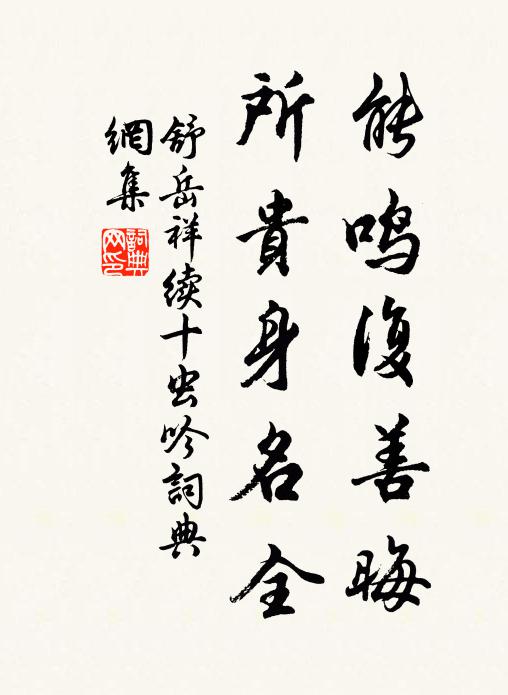 能鸣復善晦
所貴身名全
舒岳祥续十虫吟詞典
網集
詞典
网印